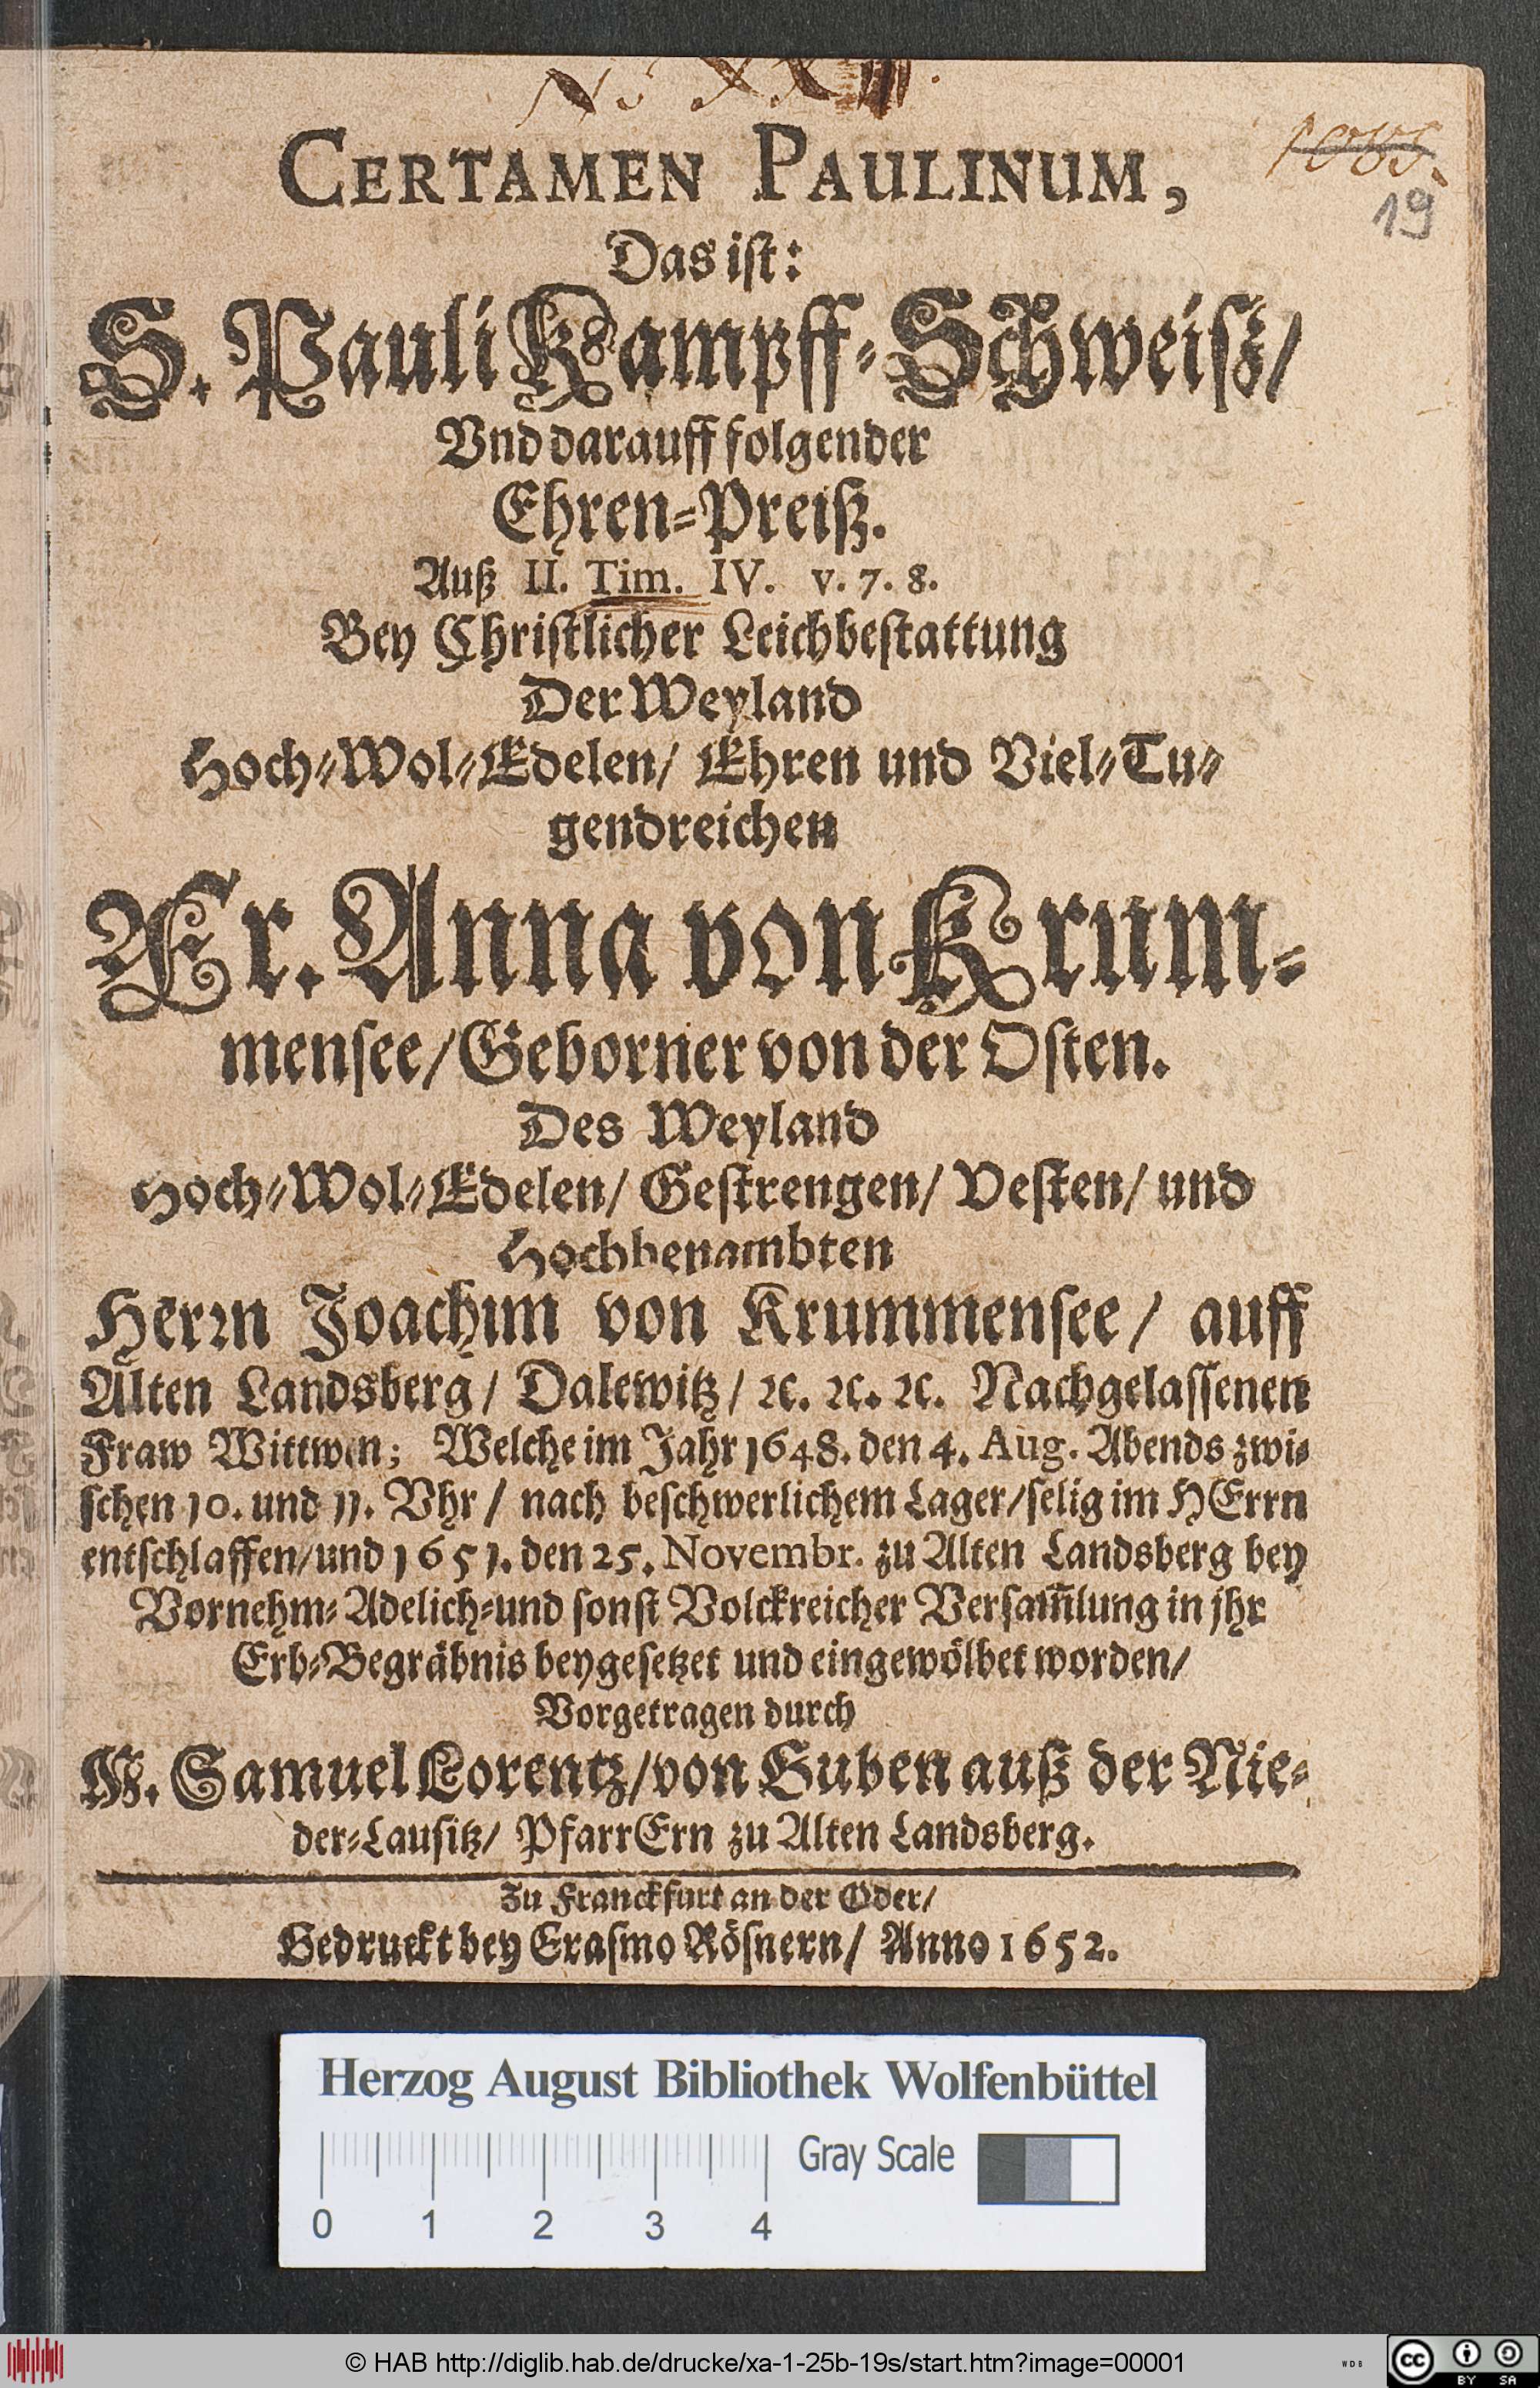 CERTAMEN PAULINUM,
19
Das ist:
S. Pauli Kampff-Schweiß/
Vnd darauff folgender
Ehren-Preiß.
Auß II. Tim. IV. v. 7. 8.
Bey Christlicher Leichbestattung
Der Weyland
Hoch-Wol-Edelen/ Ehren und Viel-Tu-
gendreichen
Fr. Anna von Krum-
mensee/ Geborner von der Osten.
Des Weyland
Hoch-Wol-Edelen/ Gestrengen/ Vesten/ und
Hochbenambten
Herrn Joachim von Krummensee/ auff
Alten Landsberg/ Dalewitz/ ꝛc. ꝛc. ꝛc. Nachgelassenen
Fraw Wittwen; Welche im Jahr 1648. den 4. Aug. Abends zwi-
schen 10. und 11. Vhr/ nach beschwerlichem Lager/ selig im HErrn
entschlaffen/ und 1651. den 25. Novembr. zu Alten Landsberg bey
Vornehm-Adelich-und sonst Volckreicher Versam̃lung in jhr
Erb-Begräbnis beygesetzet und eingewölbet worden/
Vorgetragen durch
M. Samuel Lorentz/ von Guben auß der Nie-
der-Lausitz/ PfarrErn zu Alten Landsberg.
Zu Franckfurt an der Oder/
Gedruckt bey Erasmo Rösnern/ Anno 1652.
Herzog August Bibliothek Wolfenbüttel
Gray Scale
0 1 2 3 4
© HAB http://diglib.hab.de/drucke/xa-1-25b-19s/start.htm?image=00001
WDB
cc BY SA